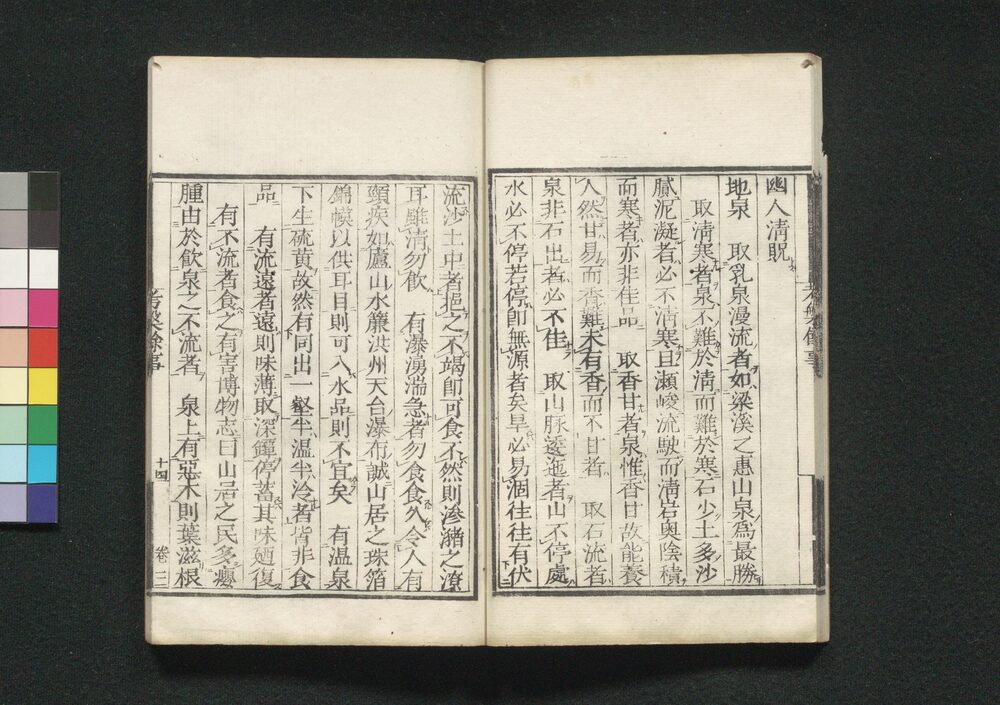 幽人清貺
地泉　取乳泉漫流者如梁溪之惠山泉為最勝
取清寒者泉不難於清而難於寒石少土多沙
膩泥凝者必不清寒且瀨峻流駛而清岩奧陰積
而寒者亦非佳品　取香甘者泉惟香甘故能養
人然甘易而香難未有香而不甘者　取石流者
泉非石出者必不佳　取山脉逶迤者山不停處
水必不停若停即無源者矣旱必易涸往往有伏
流沙土中者挹之不竭即可食不然則滲瀦之潦
耳雖清勿飲　有瀑湧湍急者勿食食久令人有
頸疾如廬山水簾洪州天台瀑布誠山居之珠箔
錦幙以供耳目則可入水品則不宜矣　有溫泉
下生硫黄故然有同出一壑半溫半冷者皆非食
品　有流遠者遠則味薄取深潭停蓄其味廼復
有不流者食之有害博物志曰山居之民多癭
腫由於飲泉之不流者　泉上有惡木則葉滋根
考槃餘事
十四
卷三